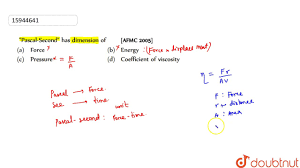 15944641
"Pascal-Second" has dimension of [AFMC 2005]
(a) Force x
(b) x Energy : (Force x displacement)
(c) Pressure x = F/A
(d) Coefficient of viscosity
η = Fr/AV
Pascal → Force
Sec → time
unit
Pascal-second : Force-time
F : Force
r → distance
A : Area